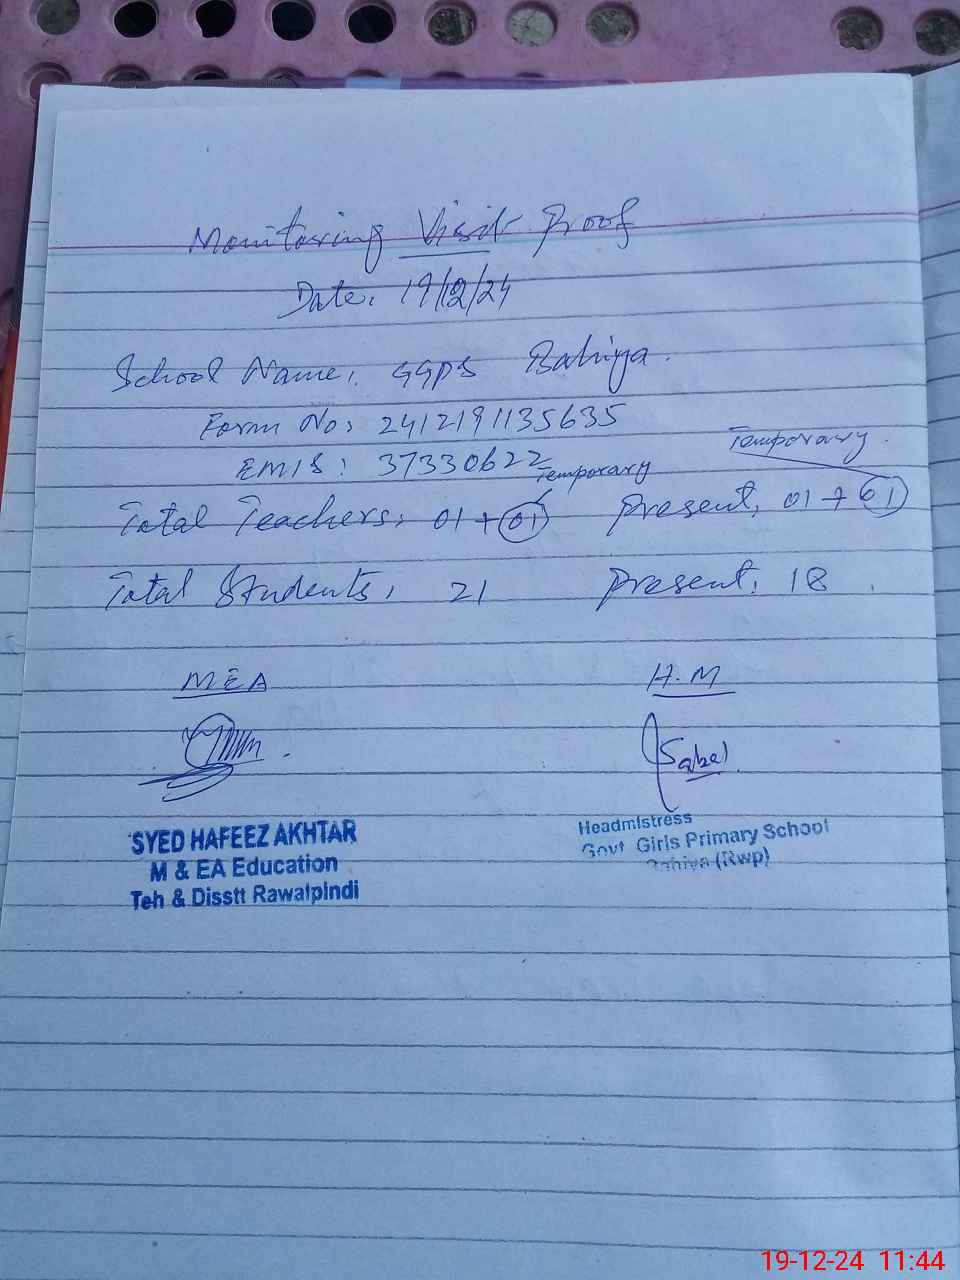 Monitoring Visit Proof
Date: 19/12/24
School Name: GGPS Bahiya.
Form No: 2412191135635
EMIS: 37330622
Temporary Temporary.
Total Teachers: 01 + 01 Present: 01 + 01
Total Students: 21 Present: 18.
MEA H.M
SYED HAFEEZ AKHTAR
M & EA Education
Teh & Disstt Rawalpindi
Headmistress
Govt Girls Primary School
Bahiya (Rwp)
19-12-24 11:44